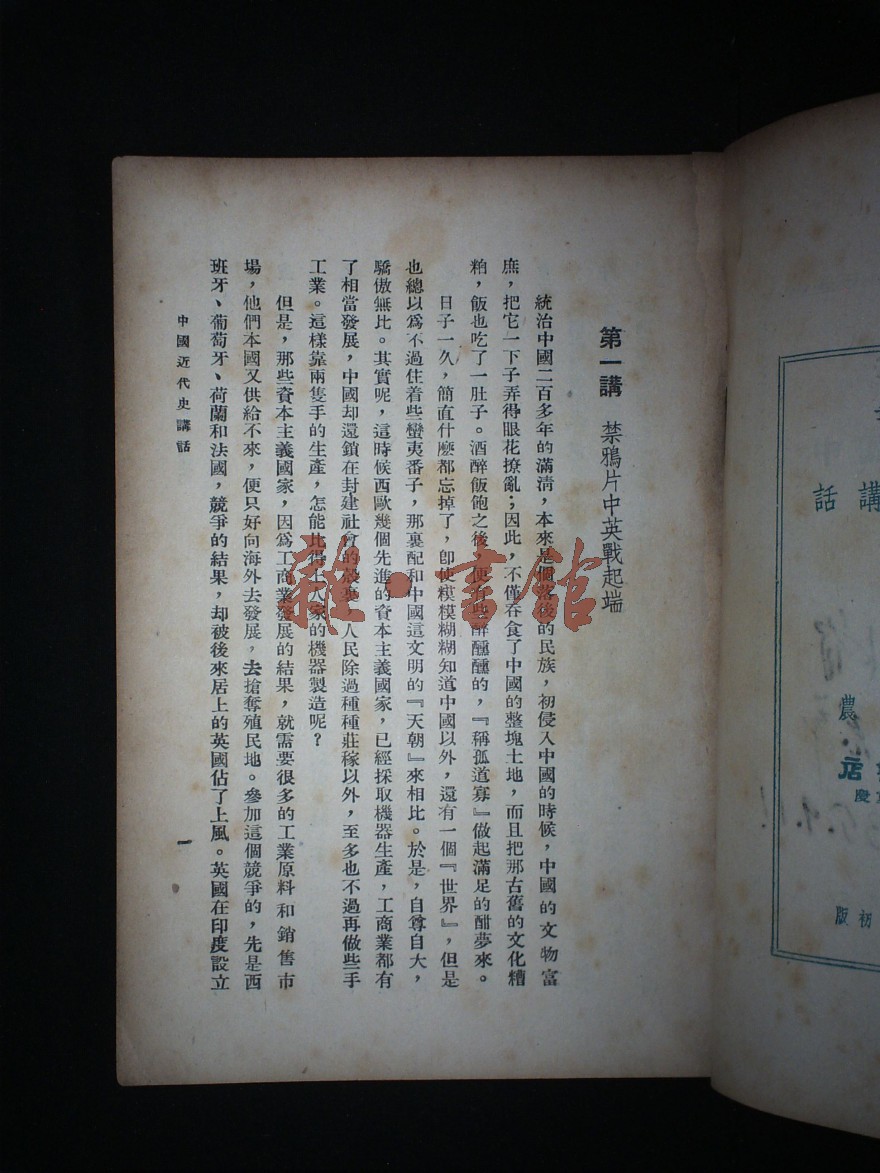 講
話
農
店
慶
初版
第一講 禁鴉片中英戰起端
統治中國二百多年的滿清，本來是個落後的民族，初侵入中國的時候，中國的文物富
庶，把它一下子弄得眼花撩亂；因此，不僅吞食了中國的整塊土地，而且把那古舊的文化糟
粕，飯也吃了一肚子。酒醉飯飽之後，便有些醉醺醺的，『稱孤道寡』做起滿足的酣夢來。
日子一久，簡直什麼都忘掉了，卽使糢糢糊糊知道中國以外，還有一個『世界』，但是
也總以爲不過住着些蠻夷番子，那裏配和中國這文明的『天朝』來相比。於是，自尊自大，
驕傲無比。其實呢，這時候西歐幾個先進的資本主義國家，已經採取機器生產，工商業都有
了相當發展，中國却還鎖在封建社會的殼裏，人民除過種種莊稼以外，至多也不過再做些手
工業。這樣靠兩隻手的生產，怎能比得上人家的機器製造呢？
但是，那些資本主義國家，因爲工商業發展的結果，就需要很多的工業原料和銷售市
場，他們本國又供給不來，便只好向海外去發展，去搶奪殖民地。參加這個競爭的，先是西
班牙、葡萄牙、荷蘭和法國，競爭的結果，却被後來居上的英國佔了上風。英國在印度設立
中國近代史講話
一
雜·書館